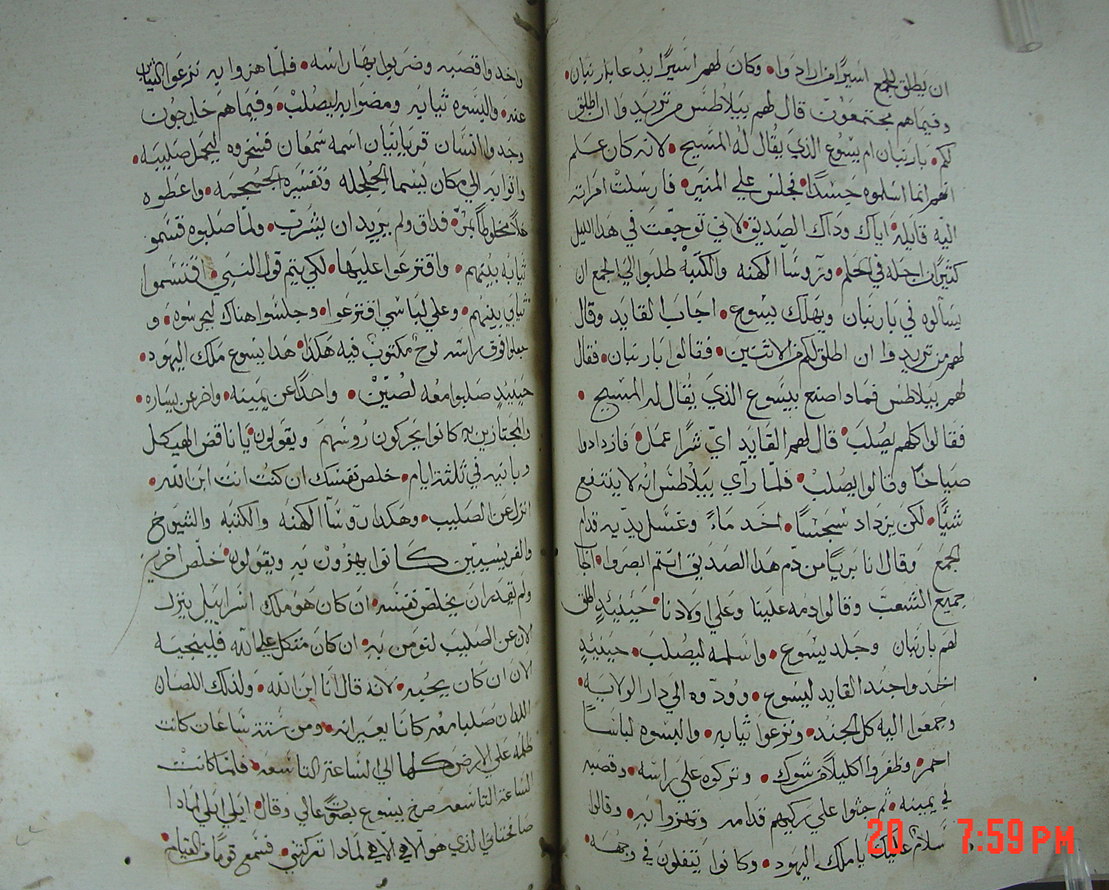 ان يطلق للجمع اسيرًا من ارادوا • وكان لهم اسيرًا يدعا بارنبان •
وفيماهم مجتمعون قال لهم بيلاطس من تريدوا ان اطلق
لكم • بارنبان ام يسوع الذي يقال له المسيح • لانه كان علم
انهم انما اسلموه حسدًا • فجلس علي المنبر • فارسلت امراته
اليه قايله • اياك وذاك الصديق • لاني توجعت في هذا الليل
كثيرًا من اجله في الحلم • وروسآ الكهنه والكتبة طلبوا الي الجمع ان
يسالوه في بارنبان ويهلك يسوع • اجاب القايد وقال
لهم من تريدوا ان اطلق لكم من الاثنين • فقالوا بارنبان • فقال
لهم بيلاطس فماذا اصنع بيسوع الذي يقال له المسيح •
فقالوا كلهم يصلب • قال لهم القايد اي شرًا عمل • فازدادوا
صياحًا وقالوا يصلب • فلما راي بيلاطس انه لا ينتفع
شيًا • لكن يزداد سجسًا • اخد ماءً وغسل يديه قدام
الجمع وقال انا بريًا من دم هذا الصديق انتم ابصروا • اجاب
جميع الشعب وقالوا دمه علينا وعلي اولادنا • حينيدٍ اطلق
لهم بارنبان وجلد يسوع • واسلمه ليصلب • حينيدٍ
اخدوا جند القايد ليسوع • وودوه الي دار الولايه •
وجمعوا اليه كل الجند • ونزعوا ثيابه • والبسوه لباسًا
احمر • وظفروا اكليلًا من شوك • وتركوه علي راسه • وقصبه
في يمينه • ثم جثوا علي ركبهم قدامه وتهزوا به • وقالوا
سلام عليك ياملك اليهود • وكانوا يتفلون في وجهه •
واخدوا قصبه وضربوا بها راسه • فلما هزوا به نزعوا الثياب
عنه • والبسوه ثيابه ومضوا به ليصلب • وفيماهم خارجون
وجدوا انسان قريانيان اسمه سمعان فسخروه ليحمل صليبه •
واتوا به الي مكان يسما الجلجله وتفسيره الجمجمه • واعطوه
خلًا مخلوطًا بمر • فداق ولم يريد ان يشرب • ولما صلبوه قسمو
ثيابه بينهم • واقترعوا عليها • لكي يتم قول النبي اقتسموا
ثيابي بينهم • وعلي لباسي اقترعوا • وجلسوا هناك يحرسوه • و
جعلوا فوق راسه لوح مكتوب فيه هكذا • هدا يسوع ملك اليهود •
حينيدٍ صلبوا معه لصين • واحدًا عن يمينه • واخر عن يساره •
والمجتازين به كانوا يحركون روسهم ويقولون • يا ناقض الهيكل
وبانيه في ثلثة ايام • خلص نفسك ان كنت انت ابن الله •
انزل عن الصليب • وهكدا روسآ الكهنه والكتبه والشيوخ
والفريسيين كانوا يهزون به ويقولون • خلص اخرين
ولم يقدر ان يخلص نفسه • ان كان هو ملك اسراييل ينزل
الان عن الصليب لنومن به • ان كان متكل علي الله فلينجيه
الان ان كان يحبه • لانه قال انا ابن الله • ولذلك اللصان
اللدان صلبا معه كانا يعيرانه • ومن ستة ساعات كانت
ظلمه علي الارض كلها الي الساعة التاسعه • فلما كانت
الساعة التاسعه صرخ يسوع بصوت عالي وقال • ايلي ايلي لمادا
صافختاني الذي هو الاهي الاهي لمادا تركتني • فسمع قومًا من القيام •
20 7:59 PM